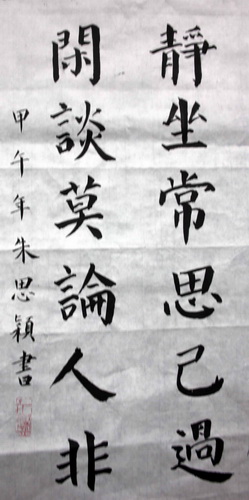 靜坐常思己過
閑談莫論人非
甲午年朱思穎書